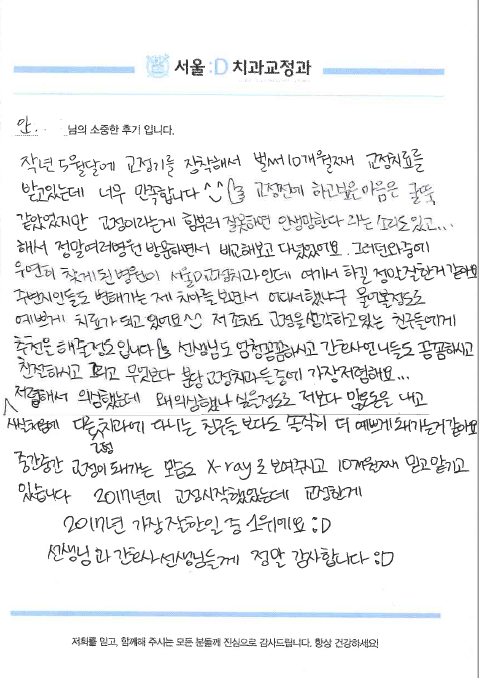 서울:D 치과교정과
안.. 님의 소중한 후기 입니다.
작년 5월달에 교정기를 장착해서 벌써 10개월째 교정치료를
받고있는데 너무 만족합니다 교정전에 하고싶은 마음은 굴뚝
같았었지만 교정이라는게 함부러 잘못하면 인생망한다 라는 소리도있고...
해서 정말여러병원 방문하면서 비교해보고 다녔었어요. 그러던와중에
우연히 찾게된병원이 서울D교정치과인데 여기서 하길 정말잘한거 같아요
주변지인들도 변해가는 제 치아를 보면서 어디서했냐구 물어볼정도로
예쁘게 치료가 되고 있어요 저 조차도 교정을 생각하고있는 친구들에게
추천을 해줄정도입니다 선생님도 엄청꼼꼼하시고 간호사언니들도 꼼꼼하시고
친절하시고 그리고 무엇보다 분당 교정치과들중에 가장저렴해요...
저렴해서 의심했는데 왜의심했나 싶을정도로 저보다 많은돈을 내고
사실처음에 다른 치과에 다니는 친구들 보다도 솔직히 더 예쁘게돼가는거같아요
교정
중간중간 교정이 돼가는 모습도 X-ray로 보여주시고 10개월째 믿고맡기고
있습니다 2017년에 교정시작했었는데 교정한게
2017년 가장잘한일 중 1위에요 :D
선생님과 간호사선생님들께 정말 감사합니다 :D
저희를 믿고, 함께해 주시는 모든 분들께 진심으로 감사드립니다. 항상 건강하세요!